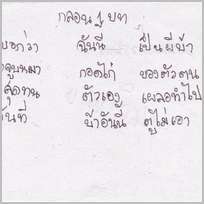 กลอน 1 บท
บอกว่า ฉันนี้ เป็นผีบ้า
จูบหมา กอดไก่ ของตัวตน
สุดทน ตัวเอง เผลอทำไป
นที่ บ้าอันนี้ ตูไม่เอา